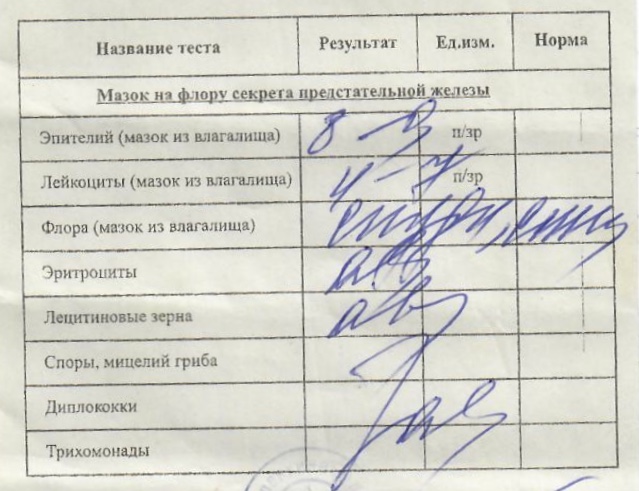 Название теста Результат Ед.изм. Норма
Мазок на флору секрета предстательной железы
Эпителий (мазок из влагалища) 8 - 9 п/зр
Лейкоциты (мазок из влагалища) 4 - 7 п/зр
Флора (мазок из влагалища)
Эритроциты
Лецитиновые зерна
Споры, мицелий гриба
Диплококки
Трихомонады